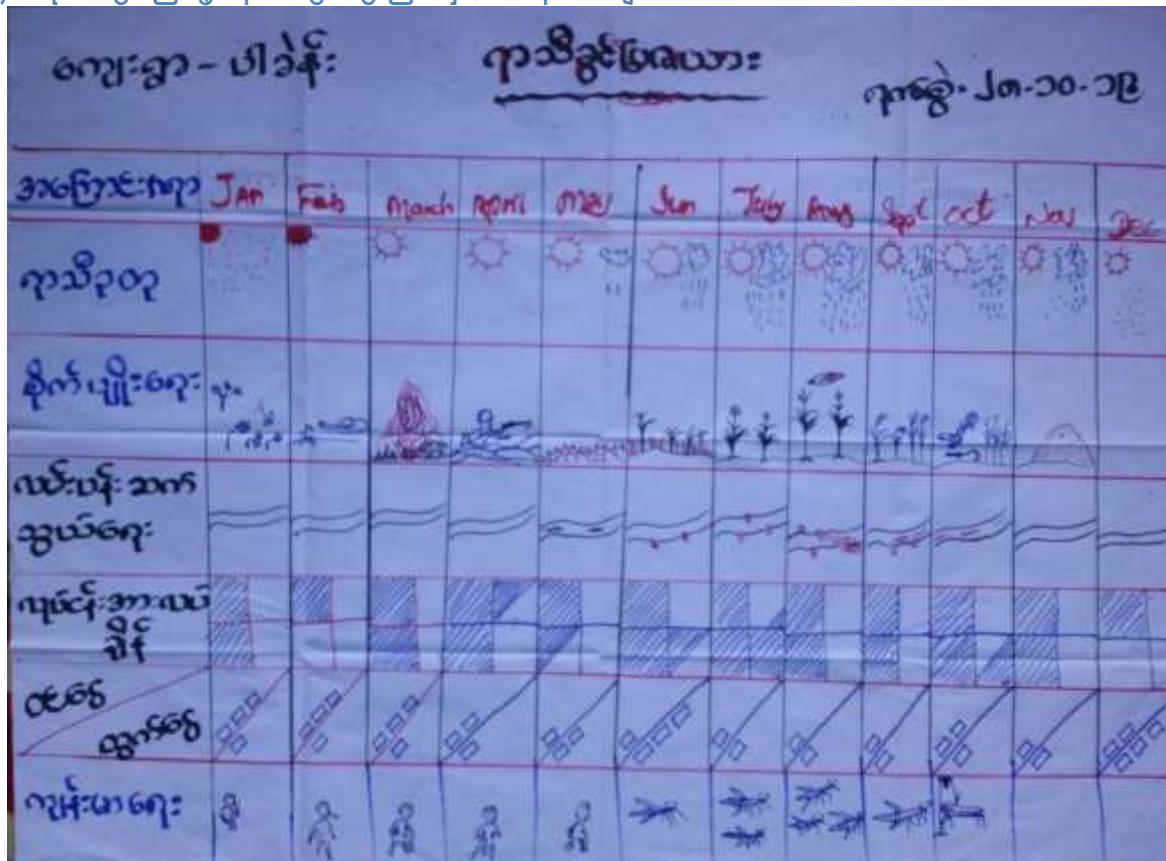 ကျေးရွာ - ပါခဲန်း
ရာသီခွင်ပြဇယား
ရက်စွဲ - ၂၈-၁၀-၁၉
အကြောင်းအရာ JAN Feb March April May Jun July Aug Sept oct Nov DEC
ရာသီဥတု
စိုက်ပျိုးရေး
လမ်းပန်းဆက်
သွယ်ရေး
လုပ်ငန်းအားလပ်
ချိန်
ဝင်ငွေ
ထွက်ငွေ
ကျန်းမာရေး